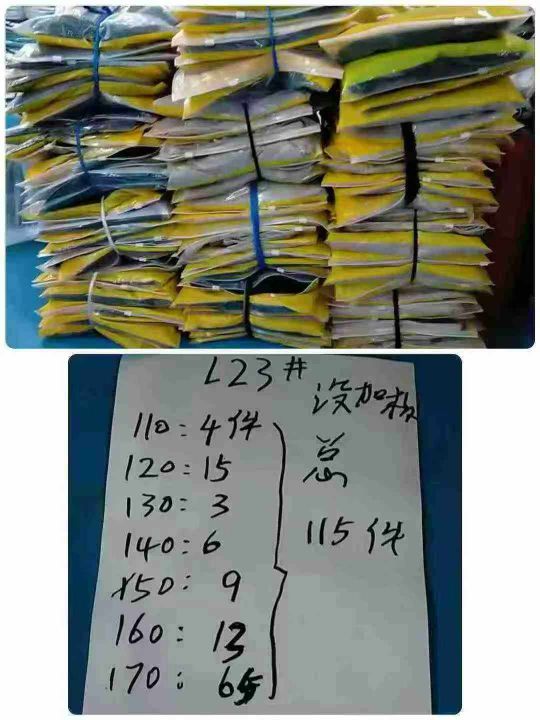 L23#
没加
110：4件
120：15
130：3
140：6
150：9
160：13
170：65
总
115件